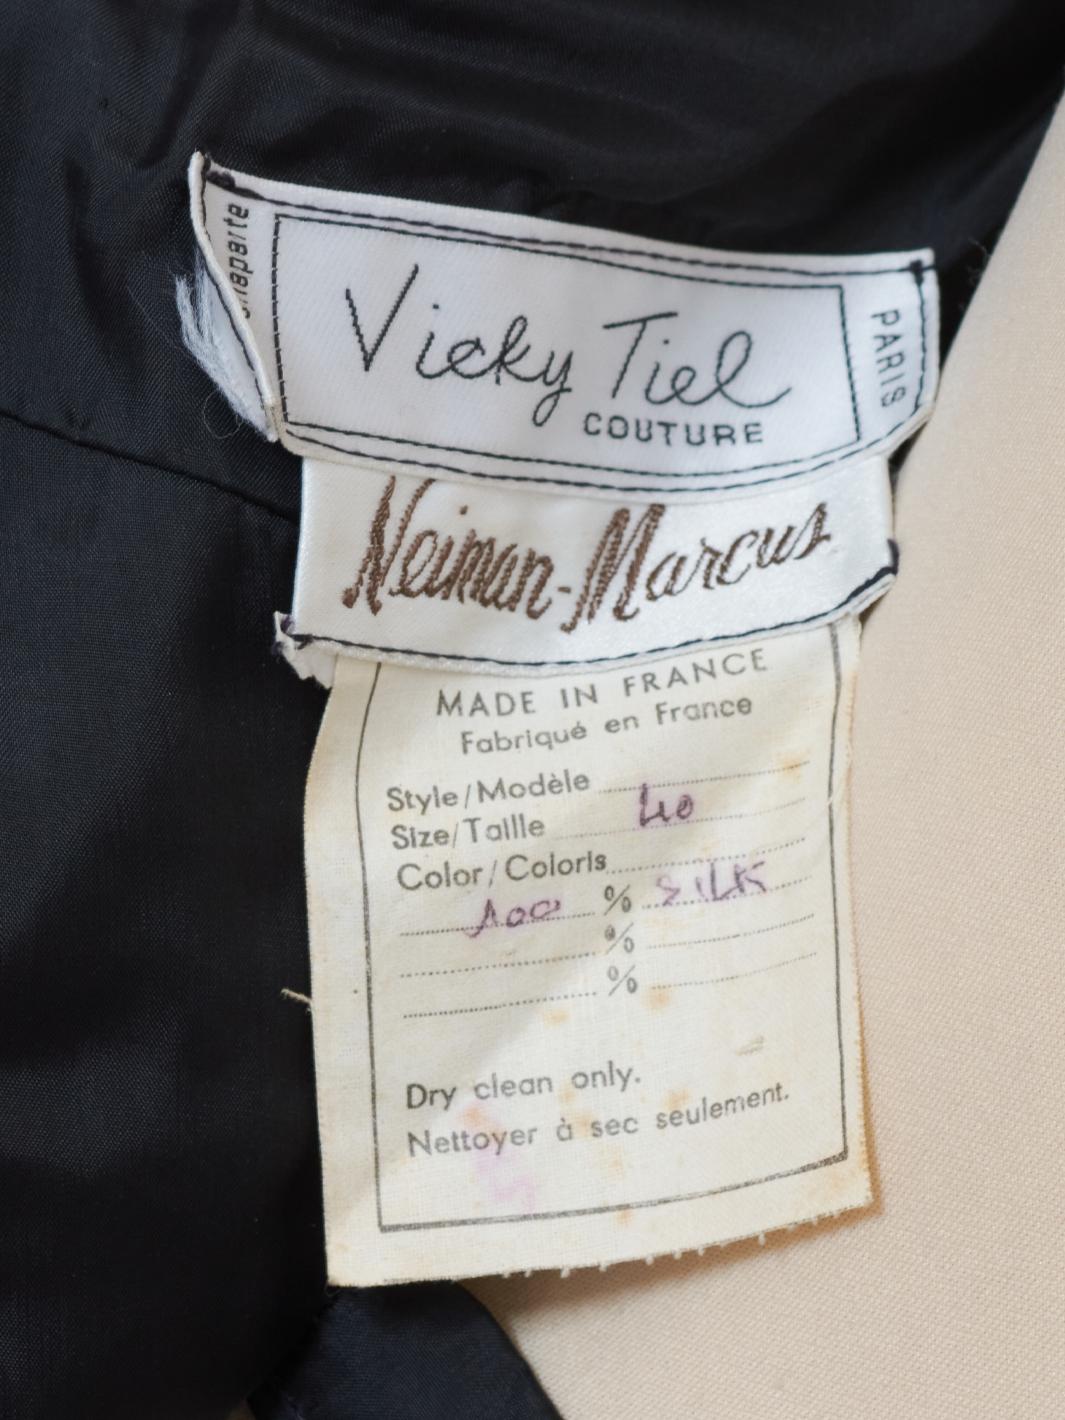 Vicky Tiel
COUTURE
PARIS
Neiman-Marcus
MADE IN FRANCE
Fabriqué en France
Style/Modèle
Size/Taille 40
Color/Coloris
100 % SILK
%
%
Dry clean only.
Nettoyer à sec seulement.